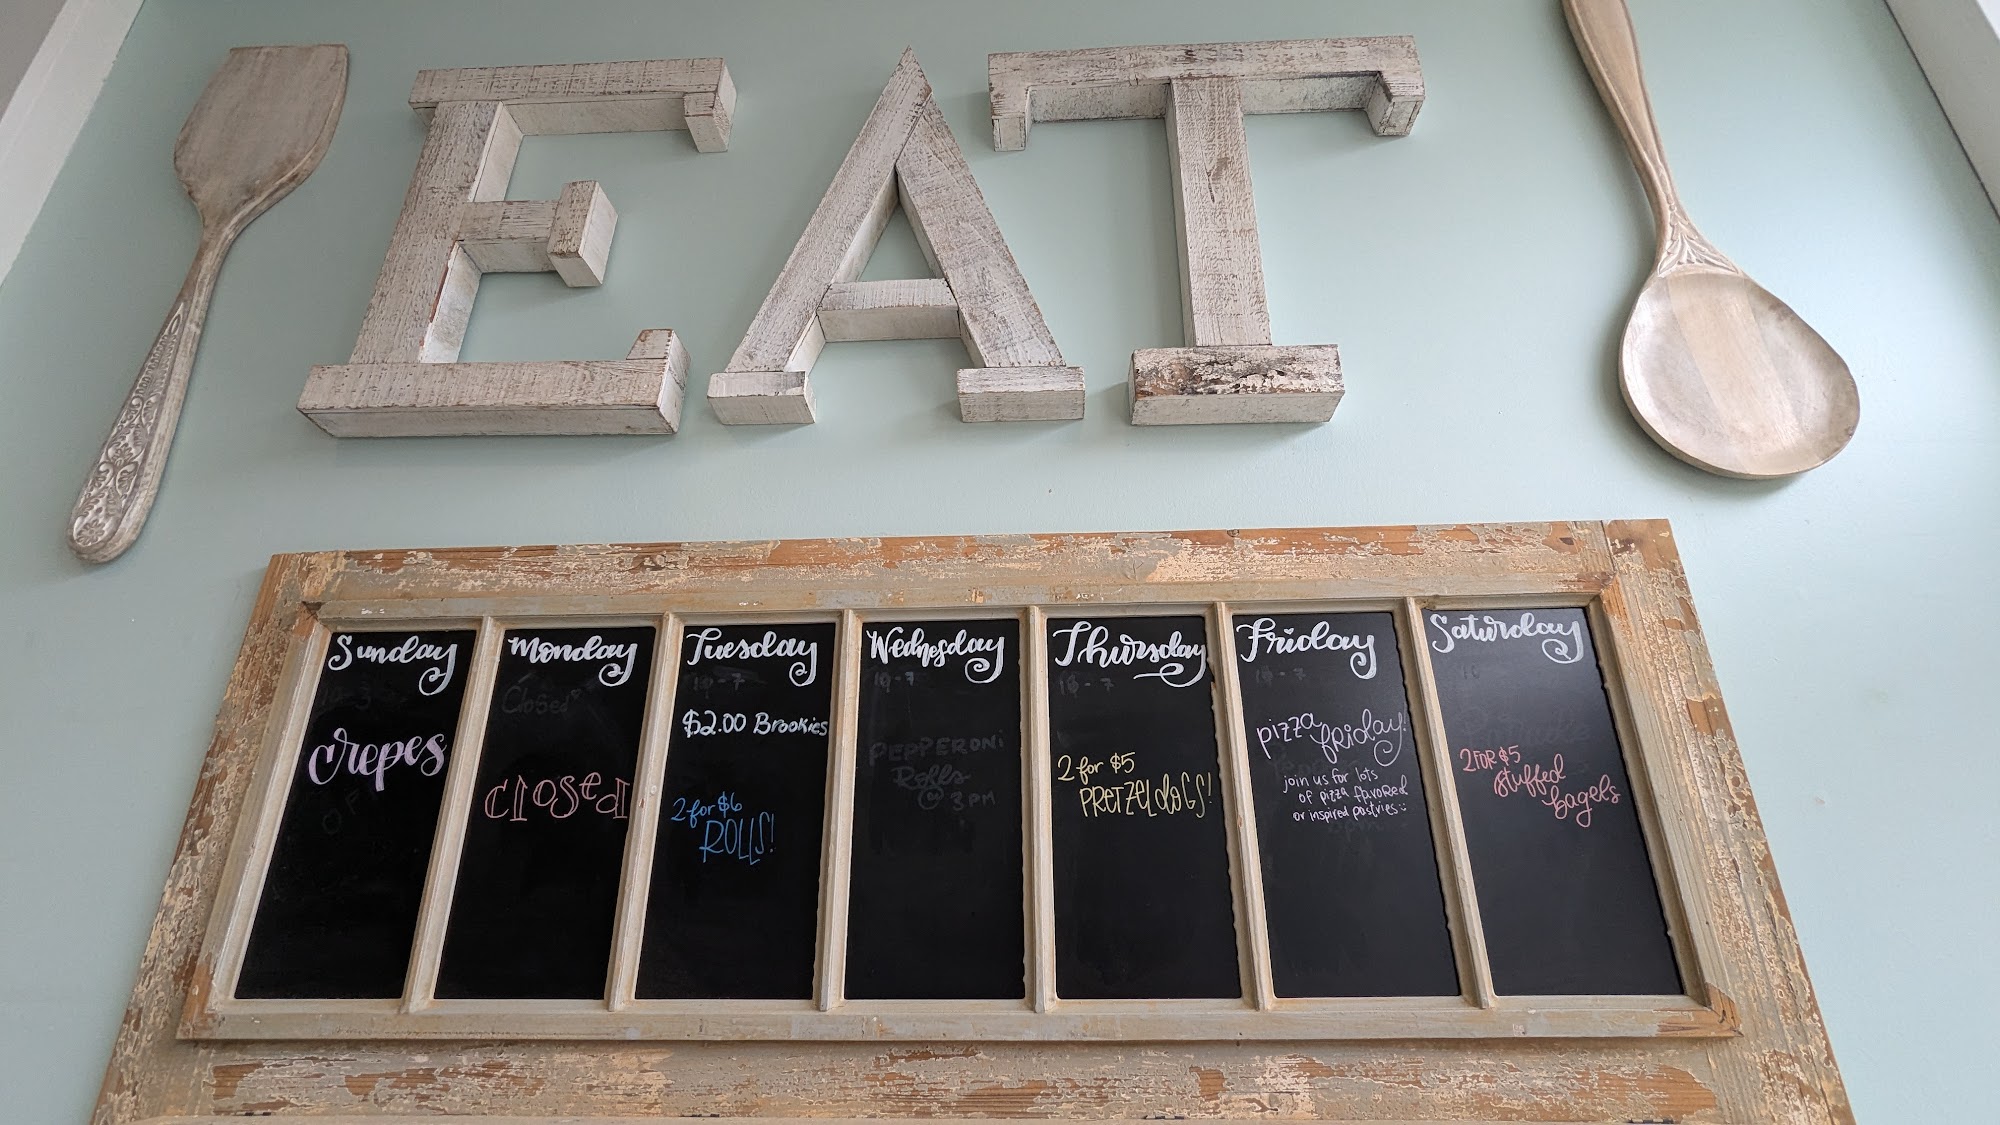 EAT
Sunday
crepes
Monday
Closed
closed
Tuesday
10-7
$2.00 Brookies
2 for $6
ROLLS!
Wednesday
10-7
PEPPERONi
Rolls
@ 3PM
Thursday
10-7
2 for $5
PRETZEL doGS!
Friday
10-7
pizza
friday!
join us for lots
of pizza flavored
or inspired pastries :)
Saturday
10
2 FOR $5
stuffed
bagels